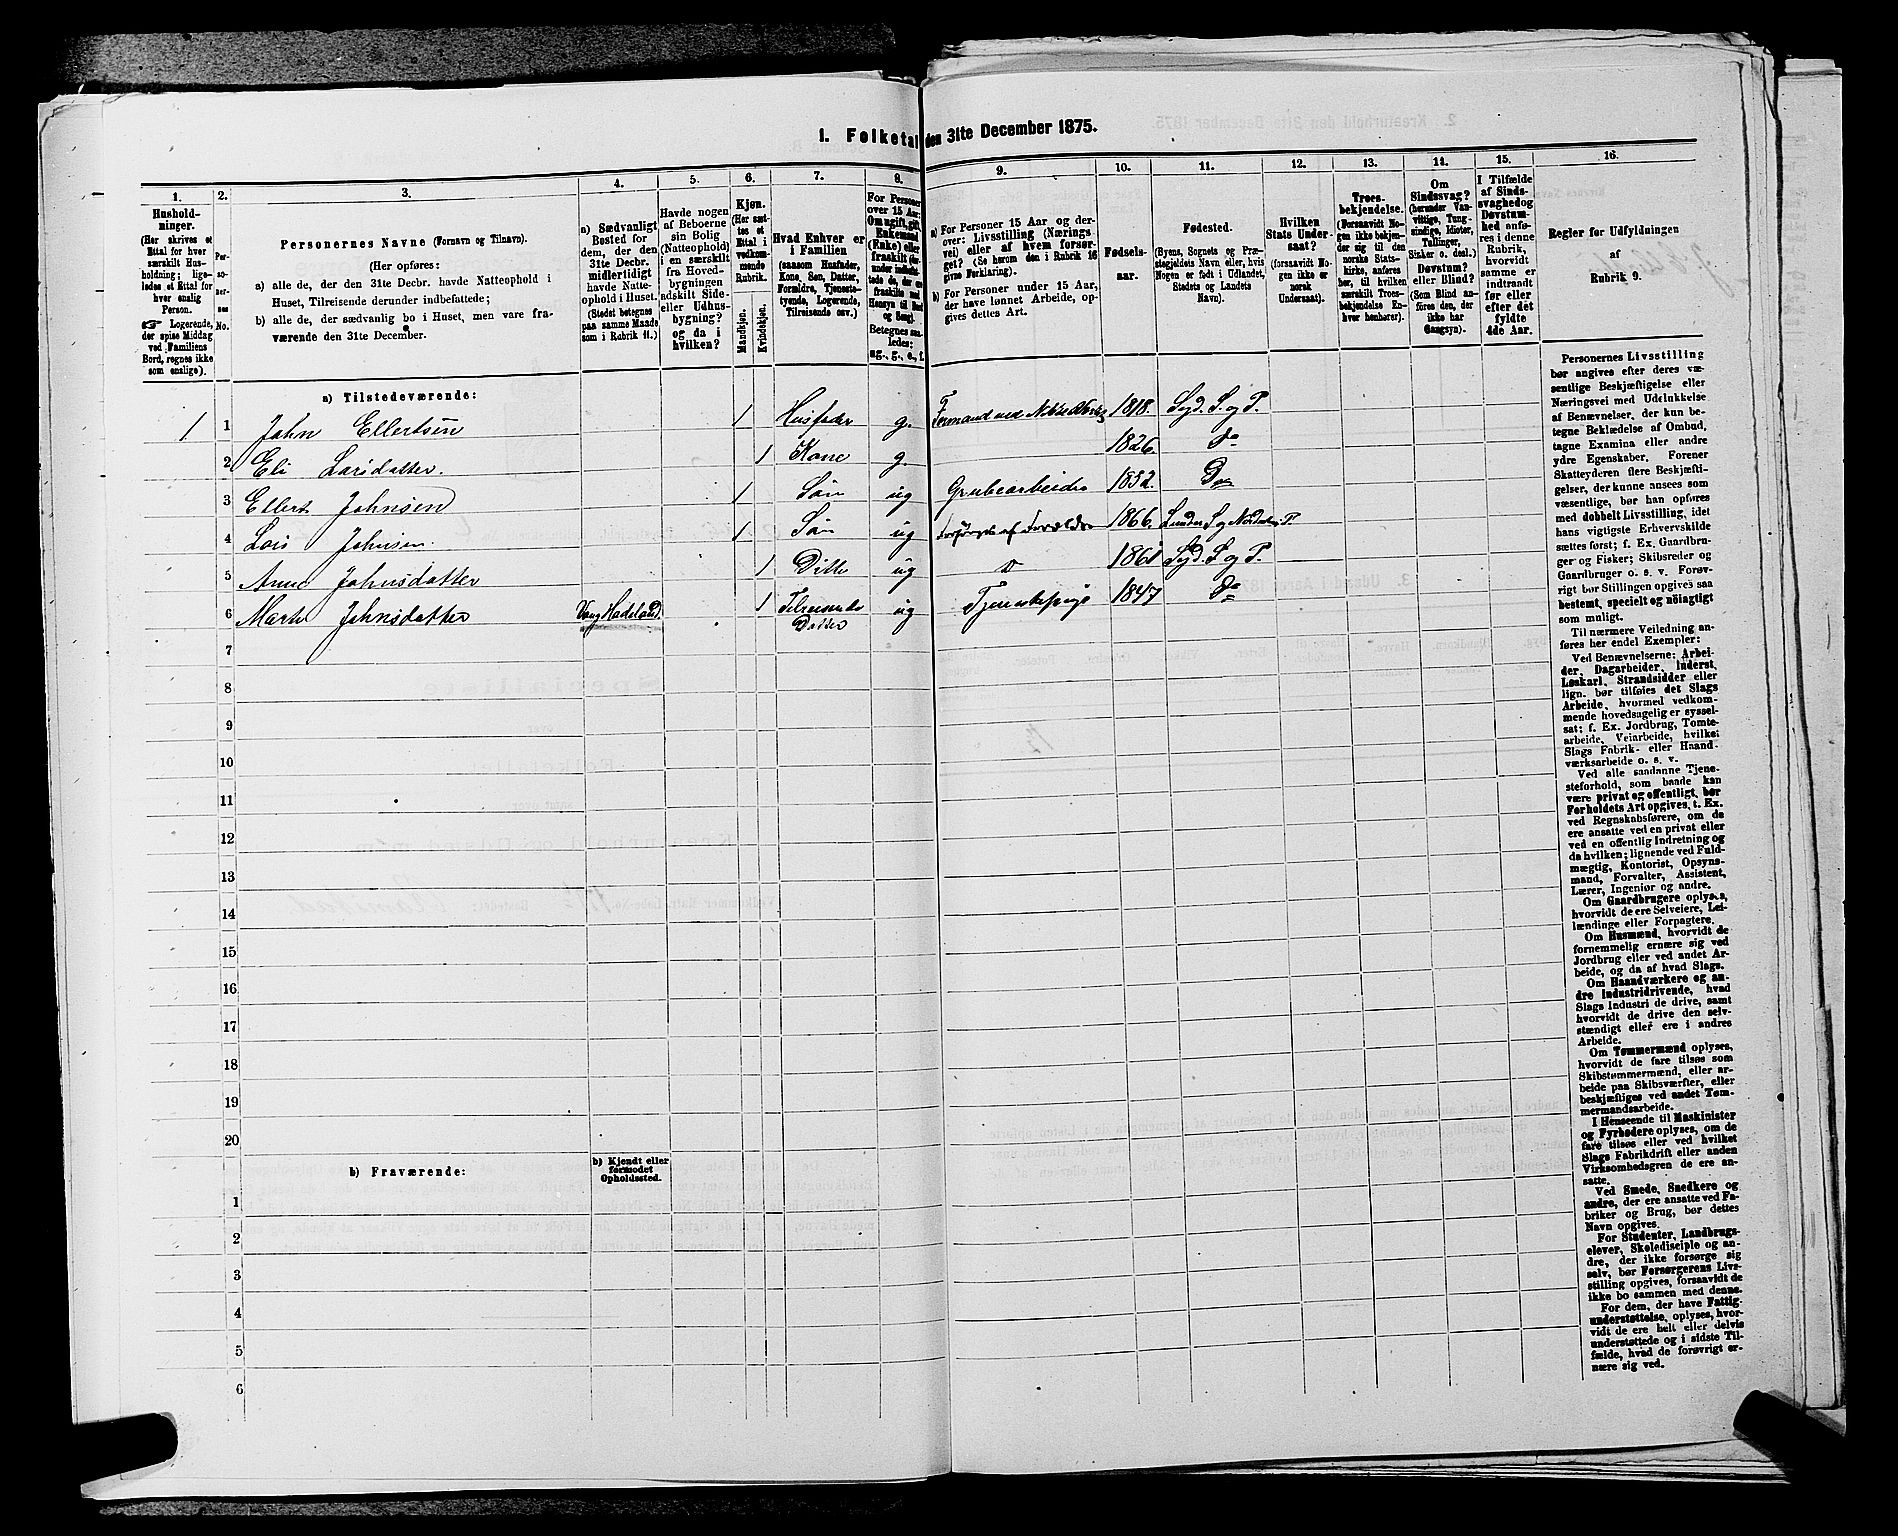 1. Folketal den 31te December 1875.
1. 2. 3. 4. 5. 6. 7. 8. 9. 10. 11. 12. 13. 14. 15. 16.
Hushold-
ninger.
(Her skrives et
Ettal for hver
særskilt Hus-
holdning; lige-
ledes et Ettal for
hver enslig
Person.
☞ Logerende,
der spise Middag
ved Familiens
Bord, regnes ikke
som enslige).
Per-
so-
ner-
nes
No.
Personernes Navne (Fornavn og Tilnavn).
(Her opføres:
a) alle de, der den 31te Decbr. havde Natteophold i
Huset, Tilreisende derunder indbefattede;
b) alle de, der sædvanlig bo i Huset, men vare fra-
værende den 31te December.
a) Sædvanligt
Bosted for
dem, der den
31te Decbr.
midlertidigt
havde Natte-
ophold i Huset.
(Stedet betegnes
paa samme Maade
som i Rubrik 11.)
Havde nogen
af Beboerne
sin Bolig
(Natteophold)
i en særskilt
fra Hoved-
bygningen
adskilt Side-
eller Udhus-
bygning?
og da i
hvilken?
Kjøn.
(Her sæt-
tes et
Ettal i
vedkom-
mende
Rubrik.
Mandkjøn.
Kvindekjøn.
Hvad Enhver er
i Familien
(saasom Husfader,
Kone, Søn, Datter,
Forældre, Tjeneste-
tyende, Logerende,
Tilreisende osv.)
For Personer
over 15 Aar:
Om ugift, gift,
Enkemand
(Enke) eller
fraskilt
Betegnes saa-
ledes:
ug., g., e., f.
a) For Personer 15 Aar og der-
over: Livsstilling (Nærings-
vei) eller af hvem forsør-
get? (Se herom den i Rubrik 16
givne Forklaring).
b) For Personer under 15 Aar,
der have lønnet Arbeide, op-
gives dettes Art.
Fødsels-
aar.
Fødested.
(Byens, Sognets og Præ-
stegjeldets Navn eller, hvis
Nogen er født i Udlandet,
Stedets og Landets
Navn).
Hvilken
Stats Under-
saat?
(forsaavidt No-
gen ikke er
norsk
Undersaat).
Troes-
bekjendelse.
(Forsaavidt No-
gen ikke bekjen-
der sig til den
norske Stats-
kirke, anføres
her, til hvilken
særskilt Troes-
bekjendelse En-
hver henhører).
Om
Sindssvag?
(herunder Van-
vittige, Tung-
sindige, Idioter,
Tullinger,
Sinker o. desl.)
Døvstum?
eller Blind?
(Som Blind an-
føres den, der
ikke har
Gangsyn).
I Tilfælde
af Sinds-
svaghed og
Døvstum-
hed anfø-
res i denne
Rubrik,
hvorvidt
samme er
indtraadt
før eller
efter det
fyldte
4de Aar.
Regler for Udfyldningen
af
Rubrik 9.
a) Tilstedeværende:
1 1 John Ellertsen 1 Husfader g. Formand ved 1818. Lyd. S. og P.
2 Eli Larsdatter. 1 Kone g. 1826. do
3 Ellert Johnsen 1 Søn ug Grubearbeider 1852. Do
4 Lars Johnsen. 1 Søn ug Forsørges af Forældre 1866. Lunder S. og P.
5 Anne Johnsdatter 1 Dtte ug 1861 Lyd. S. og P.
6 Marte Johnsdatter 1 Tilreisende ug Tjenestepige 1847 do
Datter
7
8
9
10
11
12
13
14
15
16
17
18
19
20
b) Fraværende:
b) Kjendt eller
formodet
Opholdssted.
1
2
3
4
5
6
Personernes Livsstilling
bør angives efter deres væ-
sentlige Beskjæftigelse eller
Næringsvei med Udelukkelse
af Benævnelser, der kun be-
tegne Beklædelse af Ombud,
tagne Examina eller andre
ydre Egenskaber. Forener
Skatteyderen flere Beskjæfti-
gelser, der kunne ansees som
væsentlige, bør han opføres
med dobbelt Livsstilling, idet
hans vigtigste Erhvervskilde
sættes først; f. Ex. Gaardbru-
ger og Fisker; Skibsreder og
Gaardbruger o. s. v. Forøv-
rigt bør Stillingen opgives saa
bestemt, specielt og nøiagtigt
som muligt.
Til nærmere Veiledning an-
føres her endel Exempler:
Ved Benævnelserne: Arbei-
der, Dagarbeider, Inderst,
Løskarl, Strandsidder eller
lign. bør tilføies det Slags
Arbeide, hvormed vedkom-
mende hovedsagelig er syssel-
sat; f. Ex. Jordbrug, Tomte-
arbeide, Veiarbeide, hvilket
Slags Fabrik- eller Haand-
værksarbeide o. s. v.
Ved alle saadanne Tjene-
steforhold, som baade kan
være privat og offentligt, bør
Forholdets Art opgives, t. Ex.
ved Regnskabsførere, om de
ere ansatte ved en privat eller
ved en offentlig Indretning og
da hvilken; lignende ved Fuld-
mægtig, Kontorist, Opsyns-
mand, Forvalter, Assistent,
Lærer, Ingeniør og andre.
Om Gaardbrugere oplyses,
hvorvidt de ere Selveiere, Lei-
lændinge eller Forpagtere.
Om Husmænd, hvorvidt de
fornemmelig ernære sig ved
Jordbrug eller ved andet Ar-
beide, og da af hvad Slags.
Om Haandværkere og an-
dre Industridrivende, hvad
Slags Industri de drive, samt
hvorvidt de drive den selv-
stændigt eller ere i andres
Arbeide.
Om Tømmermænd oplyses,
hvorvidt de fare tilsøs som
Skibstømmermænd, eller ar-
beide paa Skibsværfter, eller
beskjæftiges ved andet Tøm-
mermandsarbeide.
I Henseende til Maskinister
og Fyrbødere oplyses, om de
fare tilsøs eller ved hvilket
Slags Fabrikdrift eller anden
Virksomhedsgren de ere an-
satte.
Ved Smede, Snedkere og
andre, der ere ansatte ved Fa-
briker og Brug, bør dettes
Navn opgives.
For Studenter, Landbrugs-
elever, Skoledisciple og an-
dre, der ikke forsørge sig
selv, bør Forsørgerens Livs-
stilling opgives, forsaavidt de
ikke bo sammen med denne.
For dem, der have Fattig-
understøttelse, oplyses, hvor-
vidt de ere helt eller delvis
understøttede og i sidste Til-
fælde, hvad de forøvrigt er-
nære sig ved.